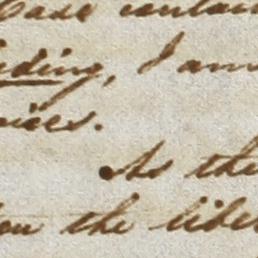 Case contain
eding, I am
ices.
As the
you the liber